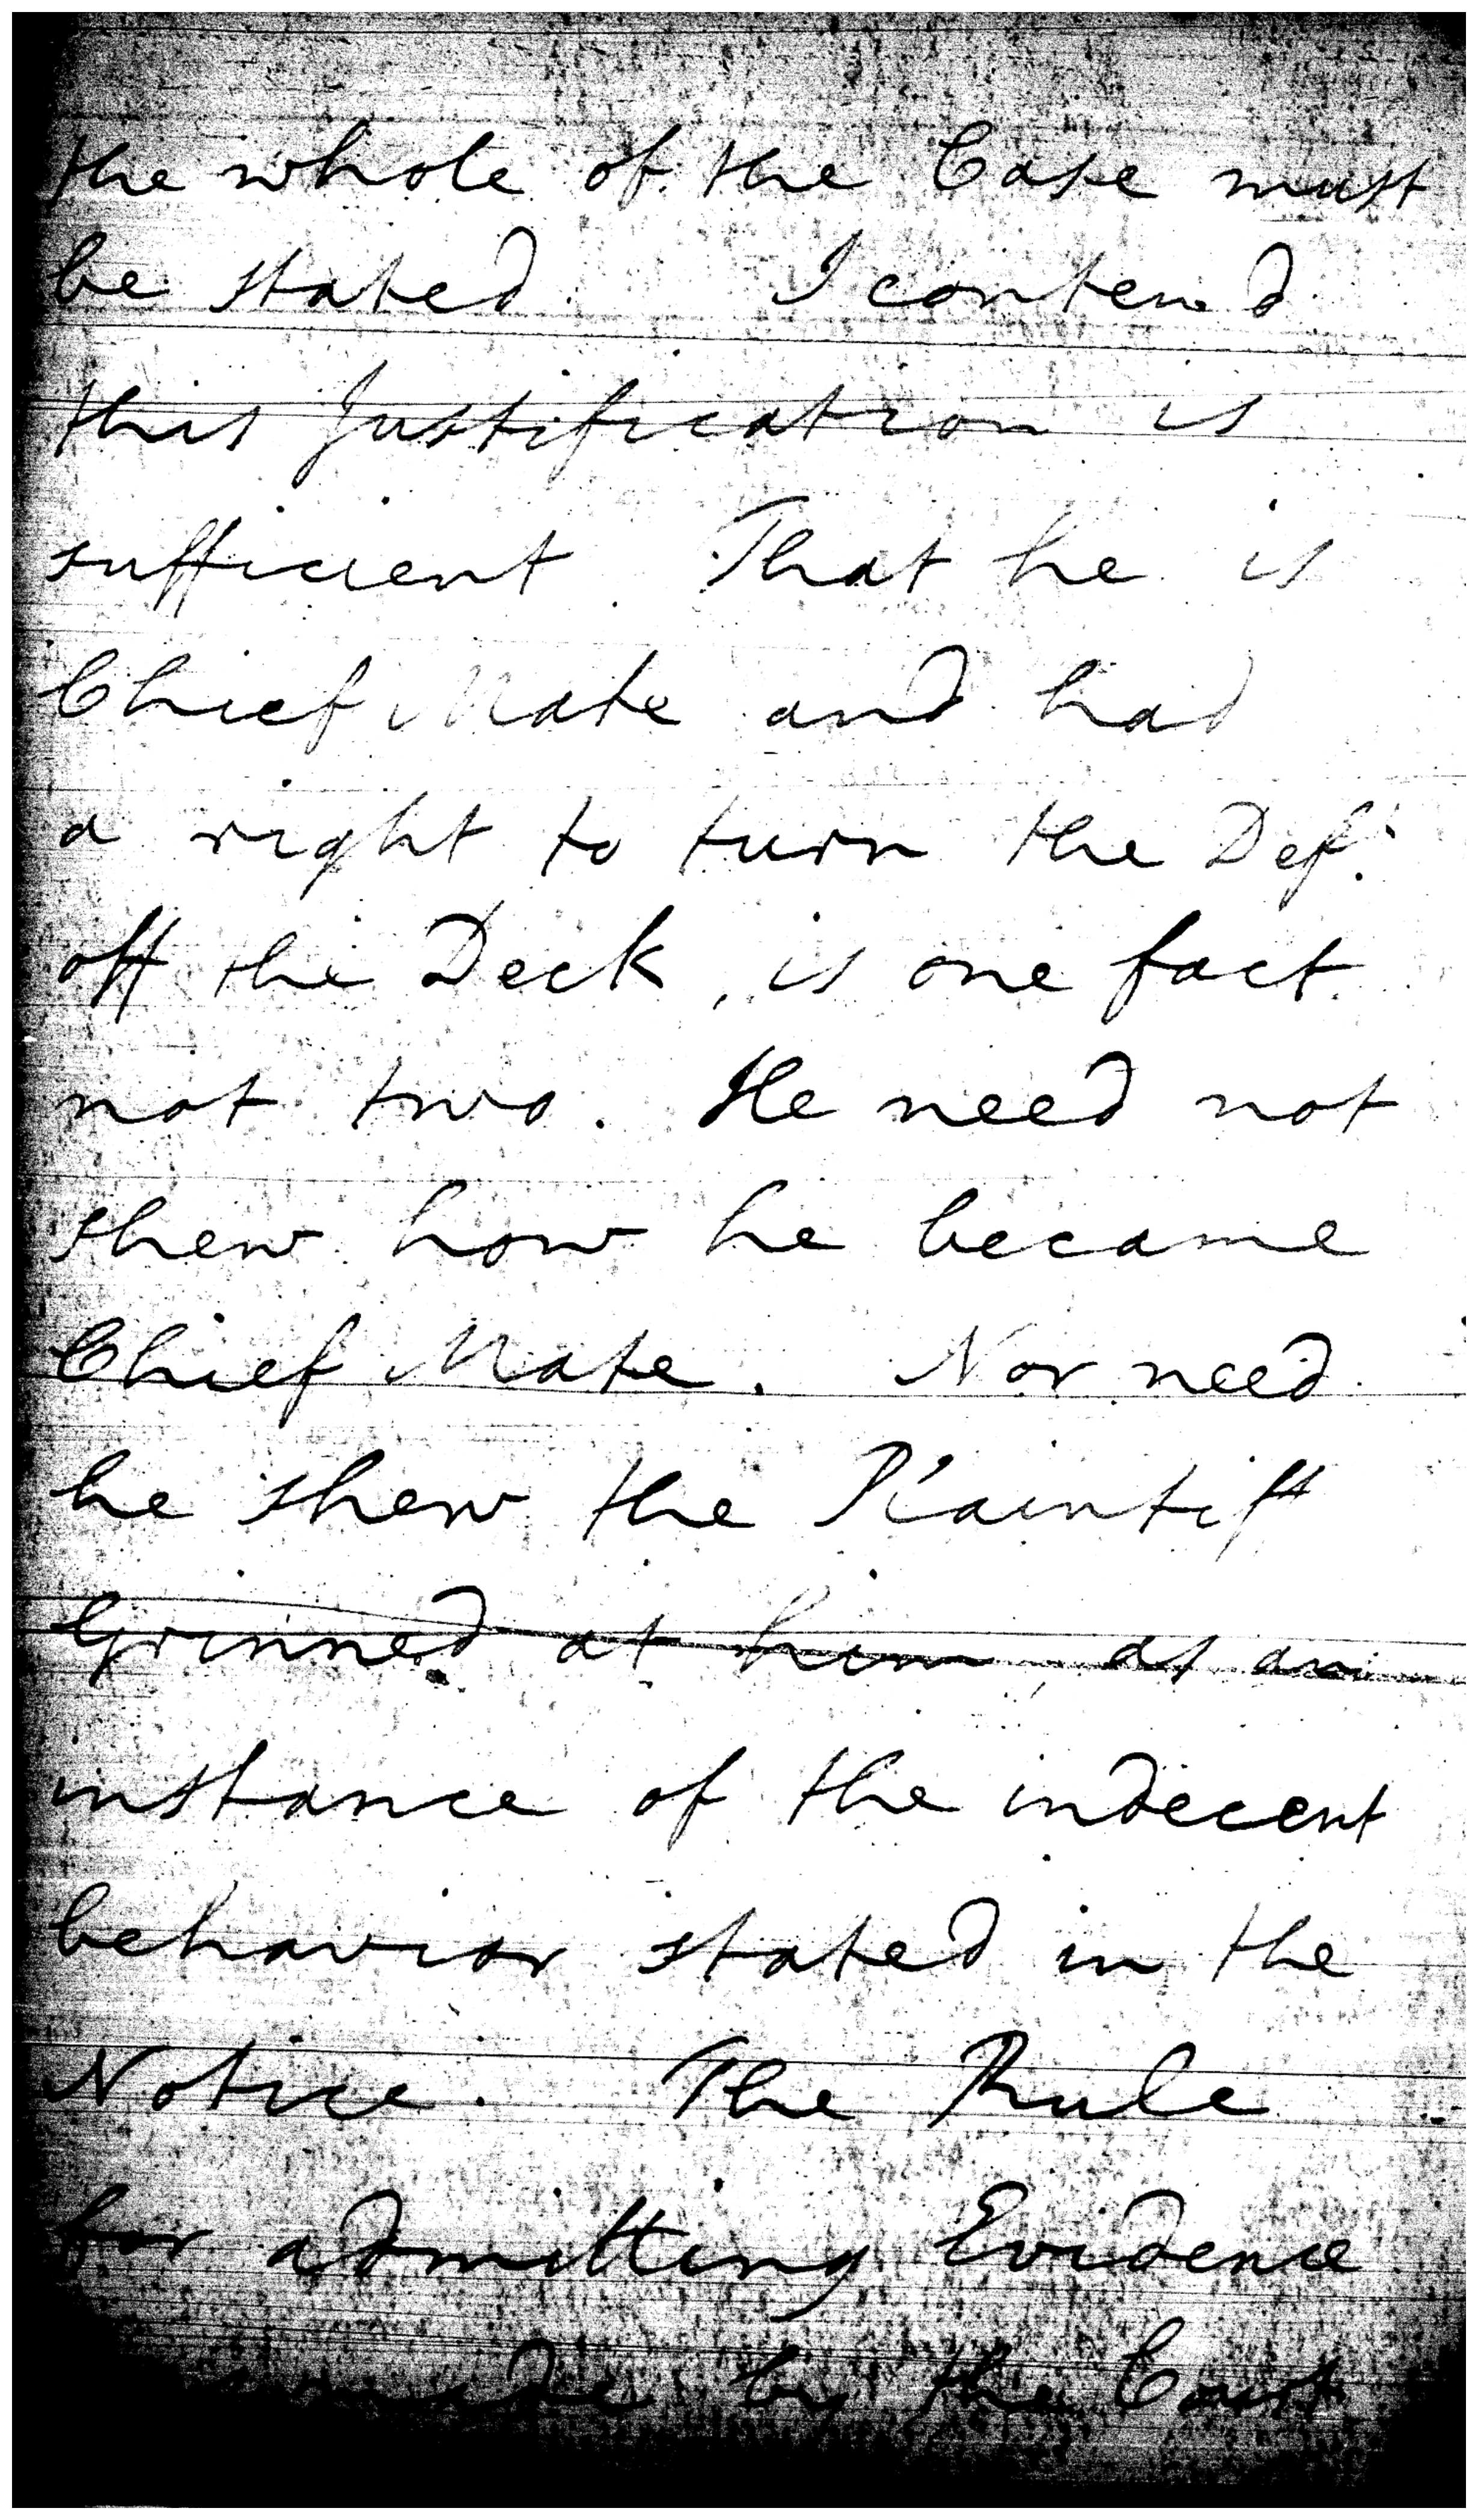 the whole of the Case must
be stated. I contend
this Justification is
sufficient. That he is
Chief Mate and had
a right to turn the Def.
off the Deck, is one fact
not two. He need not
shew how he became
Chief Mate. Nor need
he shew the Plaintiff
Grinned at him, as an
instance of the indecent
behavior stated in the
Notice. The Rule
for admitting Evidence
made by the Court